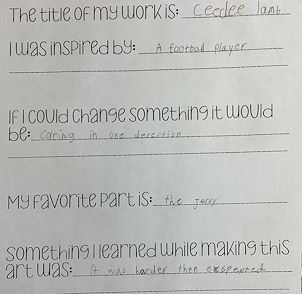 The title of my work is: Ceedee lamb
I was inspired by: A football player
If I could change something it would
be: caring in one derection
My favorite part is: the jersy
Something I learned while making this
art was: It was harder then exspexted